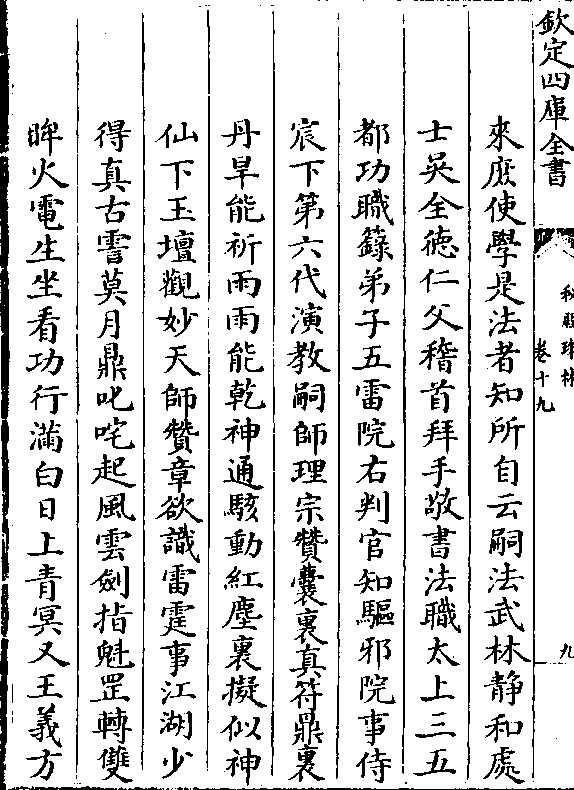 欽定四庫全書
秘殿珠林
卷十九
九
來庶使學是法者知所自云嗣法武林静和處
士吳全德仁父稽首拜手敬書法職太上三五
都功職籙弟子五雷院右判官知驅邪院事侍
宸下第六代演教嗣師理宗贊囊裏真符鼎裏
丹旱能祈雨雨能乾神通駭動紅塵裏擬似神
仙下玉壇觀妙天師贊章欲識雷霆事江湖少
得真古雪莫月鼎叱咤起風雲劍指魁罡轉雙
眸火電生坐看功行滿白日上青冥又王義方